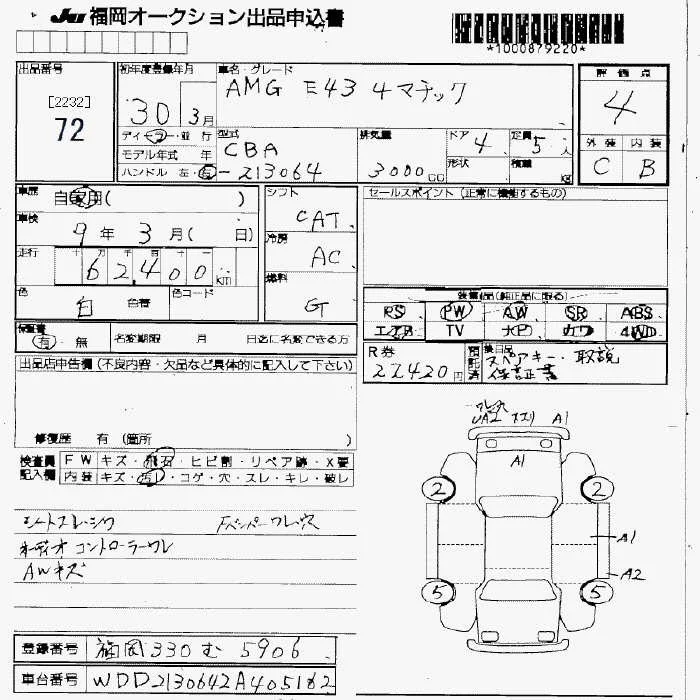 JU 福岡オークション出品申込書
*1000879220*
出品番号 [2232] 72
初年度登録年月 30 3月
車名・グレード AMG E43 4マチック
評価点 4
外装 内装
C B
ディーラー・並行
モデル年式 年
ハンドル 左・右
型式 CBA-213064
排気量 3000CC
ドア 4
形状
定員 5人
積載 KG
車歴 自家用( )
車検 9年3月( 日)
走行 十 万 千 百 十 62,400km
色 白 色替 色コード
シフト CAT
冷房 AC
燃料 G
セールスポイント (正常に機能するもの)
装備品(純正品に限る)
PS PW AW SR ABS
エアB TV ナビ カワ 4WD
保証書 有・無 名変期限 月 日迄に名変できる方
R券 22420円
預託済
後日品 スペアキー・取説
保証書
出品店申告欄(不良内容・欠品など具体的に記入して下さい)
修復歴 有(箇所 )
検査員記入欄
FW キズ・飛石・ヒビ割・リペア跡・X要
内装 キズ・汚レ・コゲ・穴・スレ・キレ・破レ
シートスレ・シワ Fバンパーワレ
オーディオコントローラーワレ
AWキズ
ワレ
A1
A1
2 2
A1
A2
5 5
登録番号 福岡 330 む 5906
車台番号 WDD2130642A405182